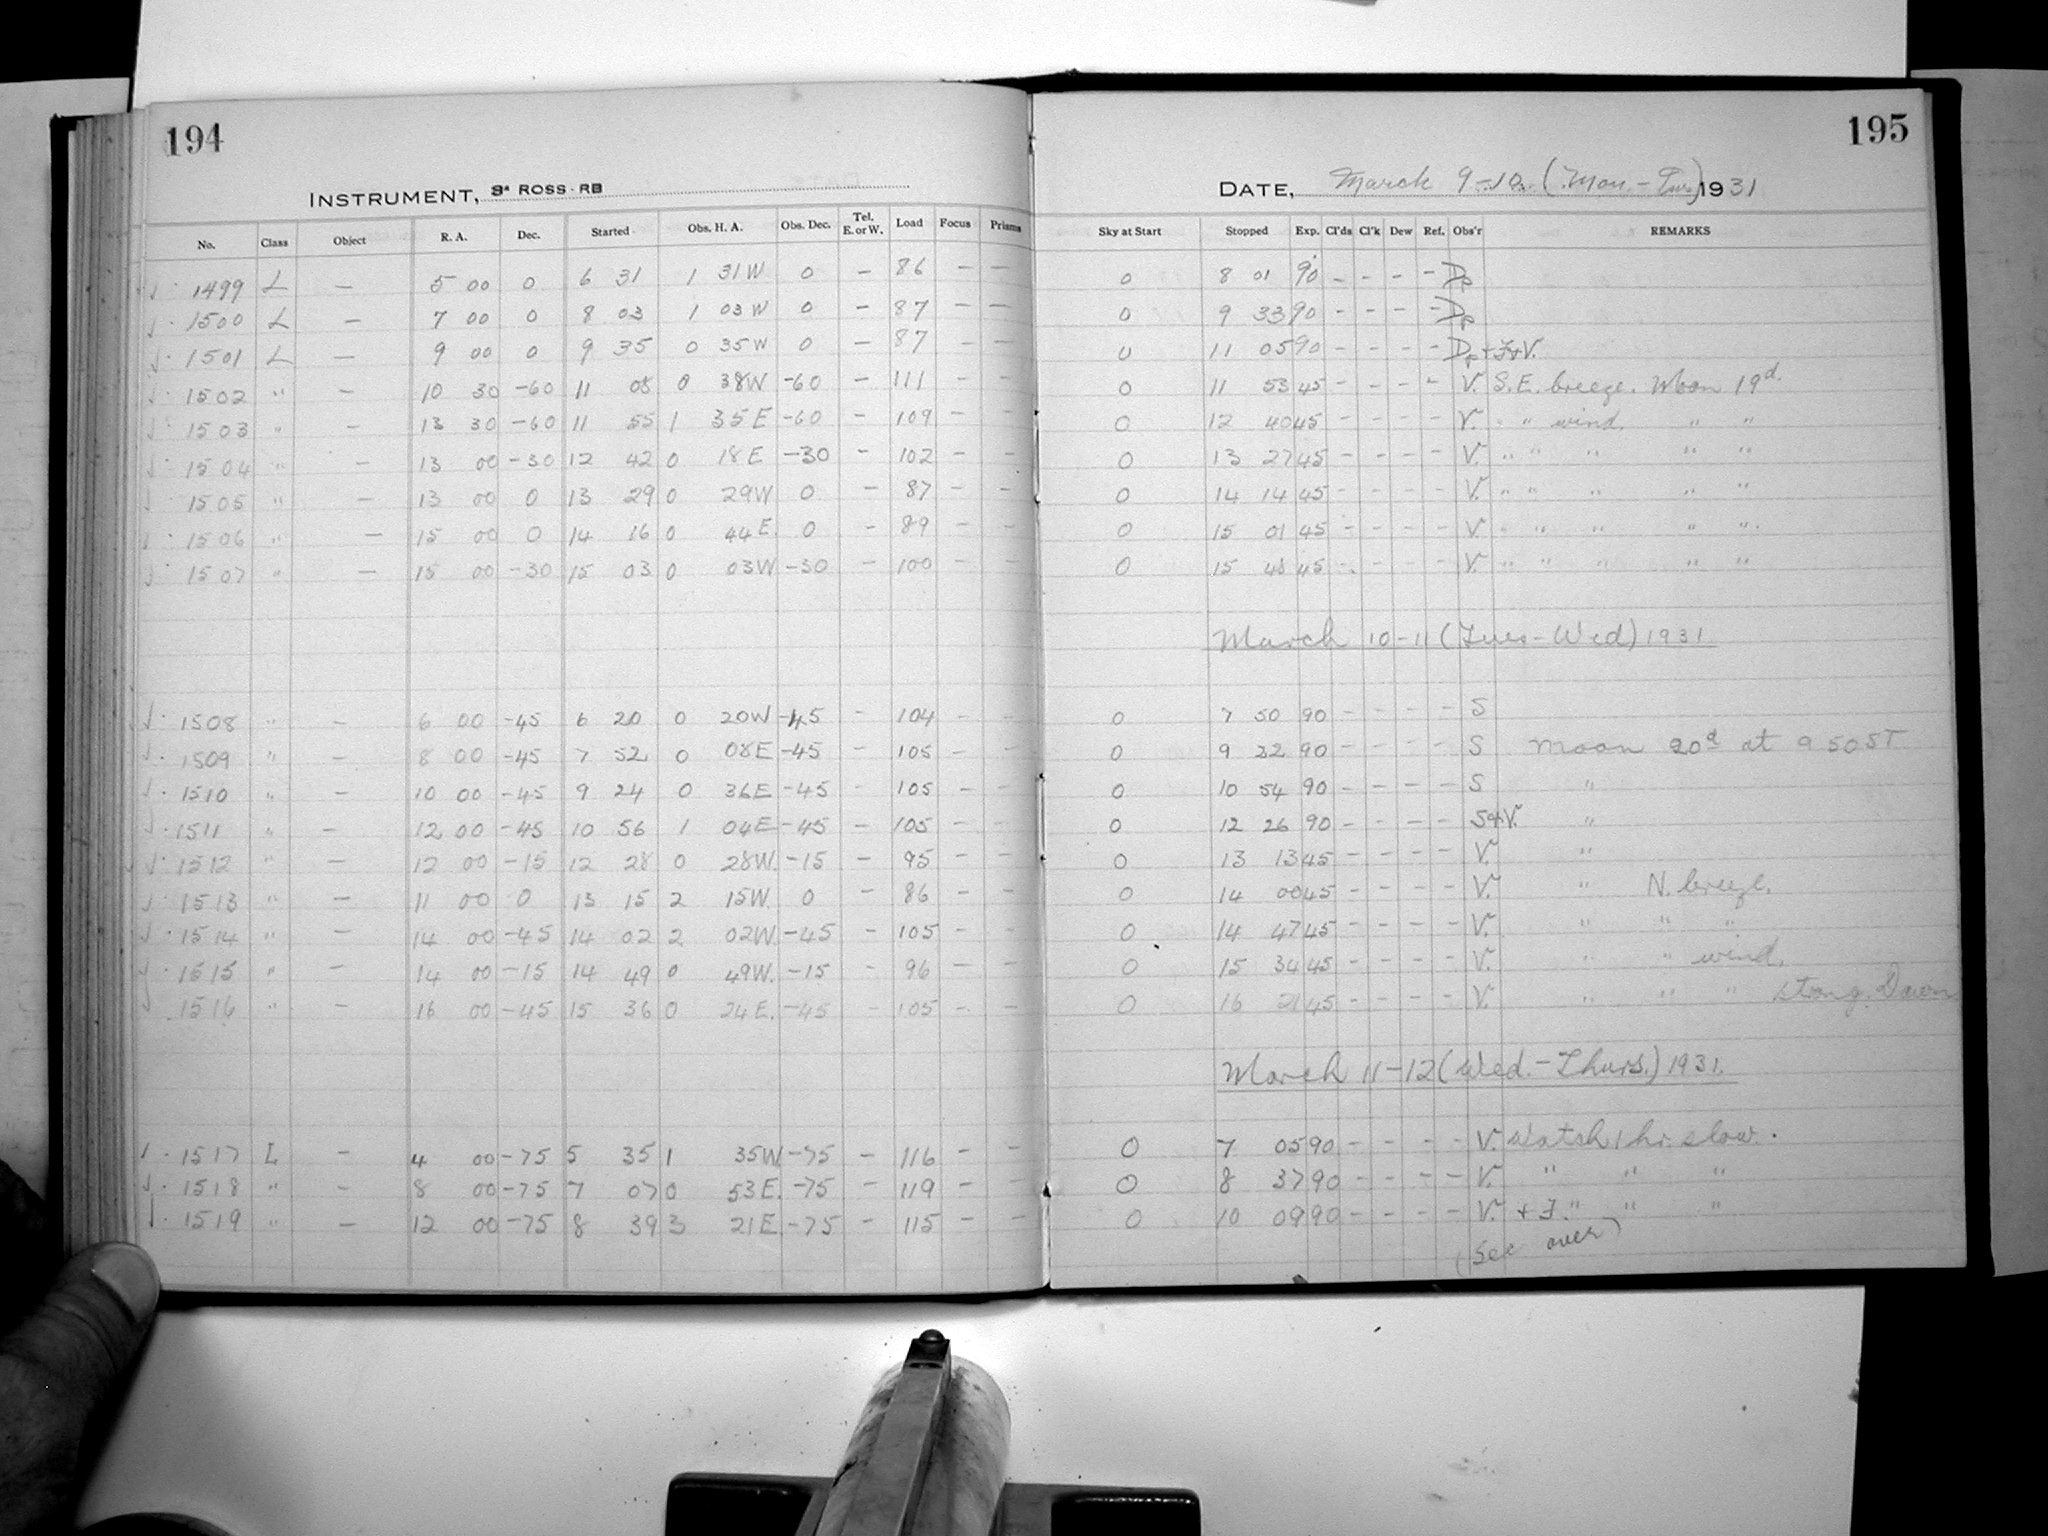 194
INSTRUMENT, 3ª ROSS-RB
No. Class Object R. A. Dec. Started Obs. H. A. Obs. Dec. Tel. E. or W. Load Focus Prisms
√ · 1499 L — 5 00 0 6 31 1 31W 0 — 86 — —
√ · 1500 L — 7 00 0 8 03 1 03W 0 — 87 — —
√ · 1501 L — 9 00 0 9 35 0 35W 0 — 87 — —
√ · 1502 " — 10 30 -60 11 08 0 38W -60 — 111 — —
√ · 1503 " — 13 30 -60 11 55 1 35E -60 — 109 — —
√ · 1504 " — 13 00 -30 12 42 0 18E -30 — 102 — —
√ · 1505 " — 13 00 0 13 29 0 29W 0 — 87 — —
√ · 1506 " — 15 00 0 14 16 0 44E. 0 — 89 — —
√ · 1507 " — 15 00 -30 15 03 0 03W -30 — 100 — —
√ · 1508 " — 6 00 -45 6 20 0 20W -45 — 104 — —
√ · 1509 " — 8 00 -45 7 52 0 08E -45 — 105 — —
√ · 1510 " — 10 00 -45 9 24 0 36E -45 — 105 — —
√ · 1511 " — 12 00 -45 10 56 1 04E -45 — 105 — —
√ · 1512 " — 12 00 -15 12 28 0 28W. -15 — 95 — —
√ · 1513 " — 11 00 0 13 15 2 15W. 0 — 86 — —
√ · 1514 " — 14 00 -45 14 02 2 02W. -45 — 105 — —
√ · 1515 " — 14 00 -15 14 49 0 49W. -15 — 96 — —
√ · 1516 " — 16 00 -45 15 36 0 24E. -45 — 105 — —
√ · 1517 L — 4 00 -75 5 35 1 35W. -75 — 116 — —
√ · 1518 " — 8 00 -75 7 07 0 53E. -75 — 119 — —
√ · 1519 " — 12 00 -75 8 39 3 21E -75 — 115 — —
195
DATE, March 9-10. (Mon.-Tues) 1931
Sky at Start Stopped Exp. Cl'ds Cl'k Dew Ref. Obs'r REMARKS
0 8 01 90 — — — —
0 9 33 90 — — — —
0 11 05 90 — — — —
0 11 53 45 — — — — V. S.E. breeze. Moon 19d.
0 12 40 45 — — — — V. " " wind. " "
0 13 27 45 — — — — V. " " " " "
0 14 14 45 — — — — V. " " " " "
0 15 01 45 — — — — V. " " " " "
0 15 48 45 — — — — V. " " " " "
March 10-11 (Tues-Wed) 1931
0 7 50 90 — — — — S
0 9 22 90 — — — — S Moon 20d at 9 50 ST
0 10 54 90 — — — — S "
0 12 26 90 — — — — S+V. "
0 13 13 45 — — — — V. "
0 14 00 45 — — — — V. " N. breeze.
0 14 47 45 — — — — V. " " "
0 15 34 45 — — — — V. " " wind.
0 16 21 45 — — — — V. " " " strong. Dawn
March 11-12 (Wed.-Thurs.) 1931.
0 7 05 90 — — — — V. Watch 1 hr. slow.
0 8 37 90 — — — — V. " " "
0 10 09 90 — — — — V. + F. " " "
(See over)